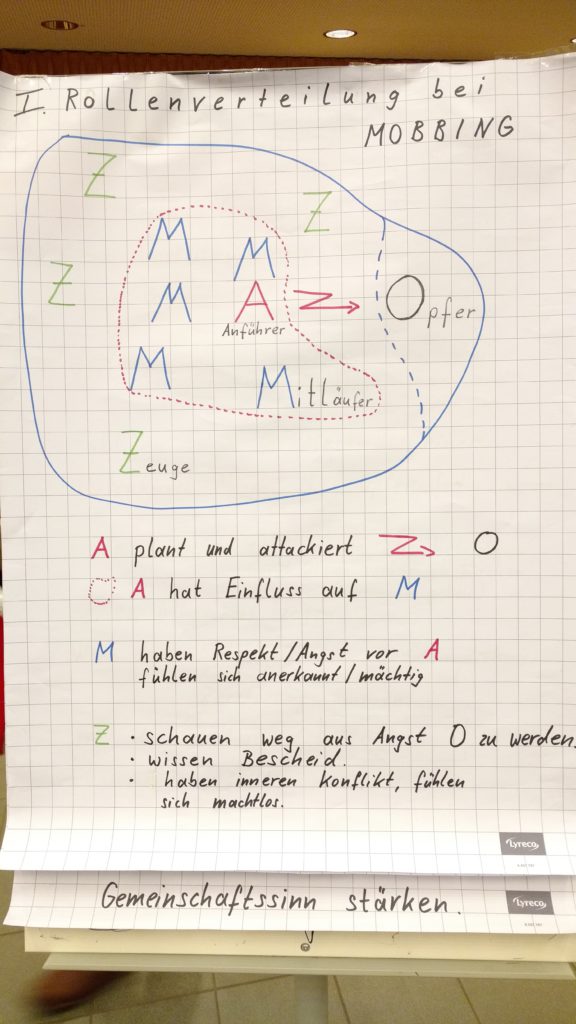 I. Rollenverteilung bei
MOBBING
Z
Z
M
M
Z
M
A
Opfer
Anführer
M
Mitläufer
Zeuge
A plant und attackiert O
A hat Einfluss auf M
M haben Respekt/Angst vor A
fühlen sich anerkannt/mächtig
Z · schauen weg aus Angst O zu werden.
· wissen Bescheid.
· haben inneren Konflikt, fühlen
sich machtlos.
Lyreco
Gemeinschaftssinn stärken.
Lyreco